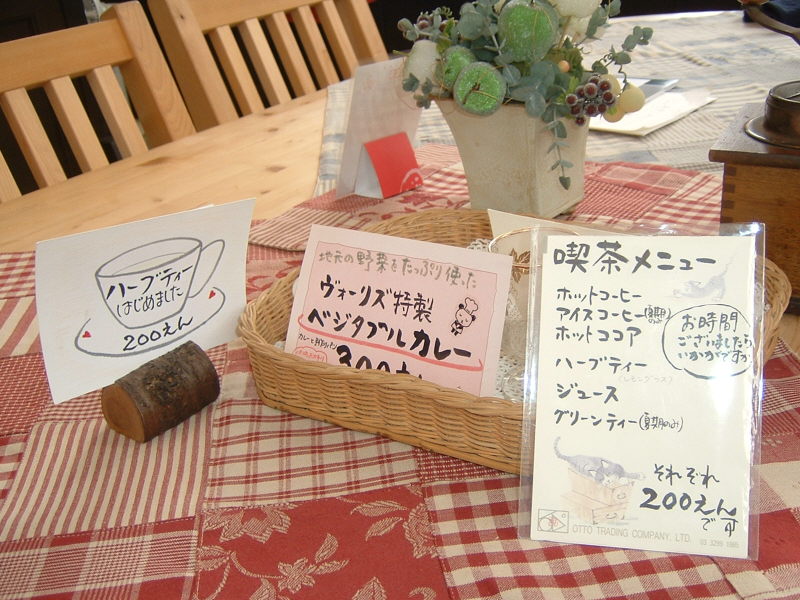 ハーブティー
はじめました
200えん
地元の野菜をたっぷり使った
ヴォーリズ特製
ベジタブルカレー
300
喫茶メニュー
ホットコーヒー
アイスコーヒー(夏期のみ)
ホットココア
ハーブティー
ジュース
グリーンティー(夏期のみ)
お時間
ございましたら
いかがですか
それぞれ
200えん
です
OTTO TRADING COMPANY, LTD.